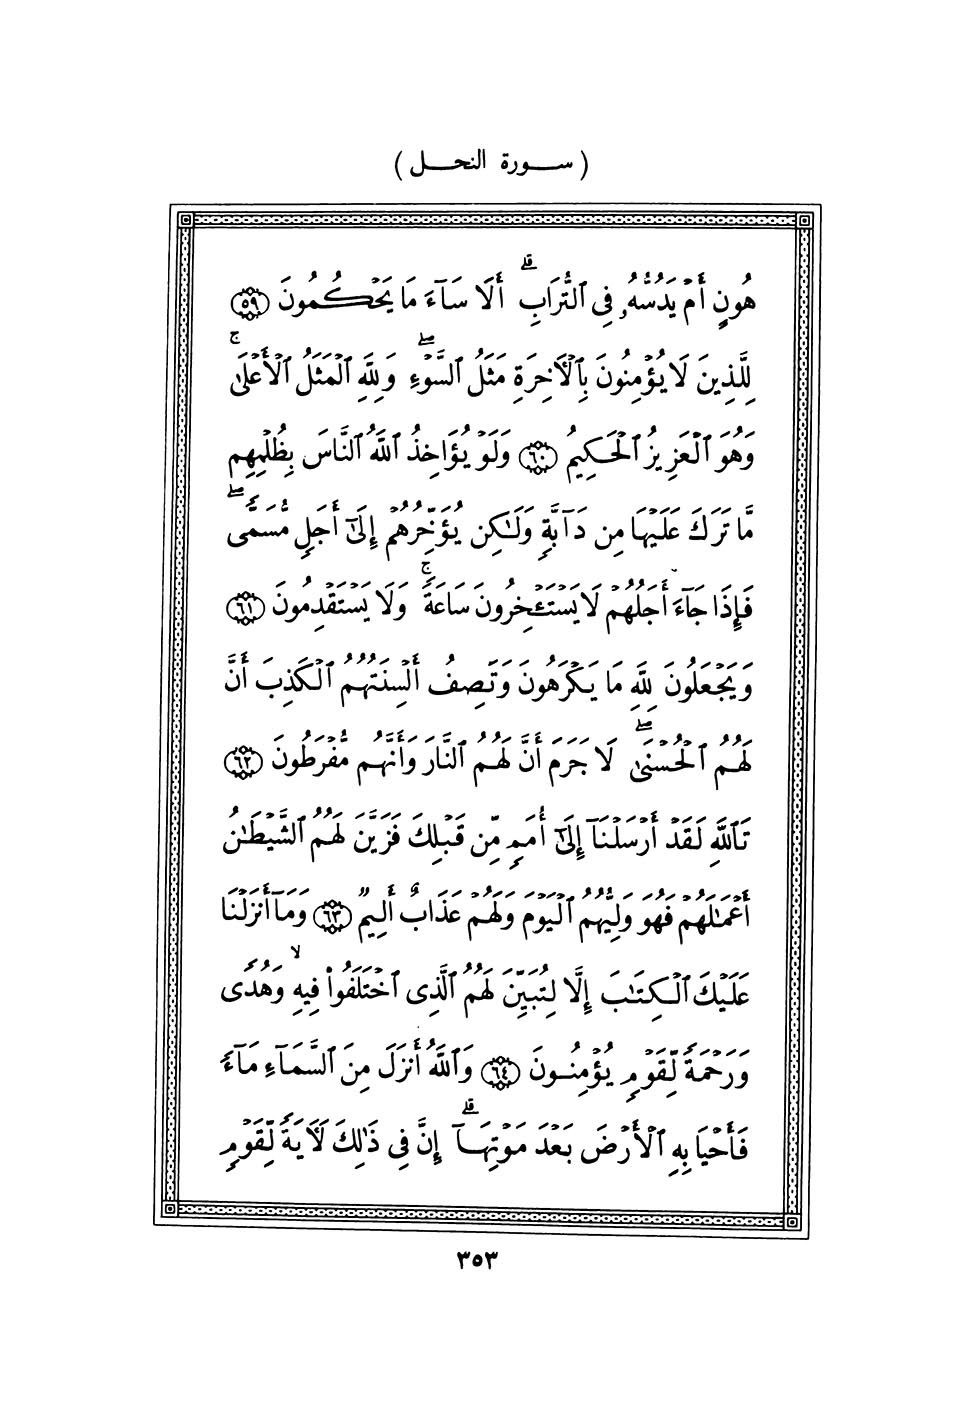 ( سورة النحل )
هُونٍ أَمْ يَدُسُّهُۥ فِى ٱلتُّرَابِ ۗ أَلَا سَآءَ مَا يَحْكُمُونَ ٥٩
لِلَّذِينَ لَا يُؤْمِنُونَ بِٱلْأَخِرَةِ مَثَلُ ٱلسَّوْءِ ۖ وَلِلَّهِ ٱلْمَثَلُ ٱلْأَعْلَىٰ ۚ
وَهُوَ ٱلْعَزِيزُ ٱلْحَكِيمُ ٦٠ وَلَوْ يُؤَاخِذُ ٱللَّهُ ٱلنَّاسَ بِظُلْمِهِم
مَّا تَرَكَ عَلَيْهَا مِن دَآبَّةٍ وَلَٰكِن يُؤَخِّرُهُمْ إِلَىٰٓ أَجَلٍ مُّسَمًّى ۖ
فَإِذَا جَآءَ أَجَلُهُمْ لَا يَسْتَـْٔخِرُونَ سَاعَةً ۚ وَلَا يَسْتَقْدِمُونَ ٦١
وَيَجْعَلُونَ لِلَّهِ مَا يَكْرَهُونَ وَتَصِفُ أَلْسِنَتُهُمُ ٱلْكَذِبَ أَنَّ
لَهُمُ ٱلْحُسْنَىٰ ۖ لَا جَرَمَ أَنَّ لَهُمُ ٱلنَّارَ وَأَنَّهُم مُّفْرَطُونَ ٦٢
تَٱللَّهِ لَقَدْ أَرْسَلْنَآ إِلَىٰٓ أُمَمٍ مِّن قَبْلِكَ فَزَيَّنَ لَهُمُ ٱلشَّيْطَٰنُ
أَعْمَٰلَهُمْ فَهُوَ وَلِيُّهُمُ ٱلْيَوْمَ وَلَهُمْ عَذَابٌ أَلِيمٌ ٦٣ وَمَآ أَنزَلْنَا
عَلَيْكَ ٱلْكِتَٰبَ إِلَّا لِتُبَيِّنَ لَهُمُ ٱلَّذِى ٱخْتَلَفُوا۟ فِيهِ ۙ وَهُدًى
وَرَحْمَةً لِّقَوْمٍ يُؤْمِنُونَ ٦٤ وَٱللَّهُ أَنزَلَ مِنَ ٱلسَّمَآءِ مَآءً
فَأَحْيَا بِهِ ٱلْأَرْضَ بَعْدَ مَوْتِهَآ ۗ إِنَّ فِى ذَٰلِكَ لَأَيَةً لِّقَوْمٍ
٣٥٣